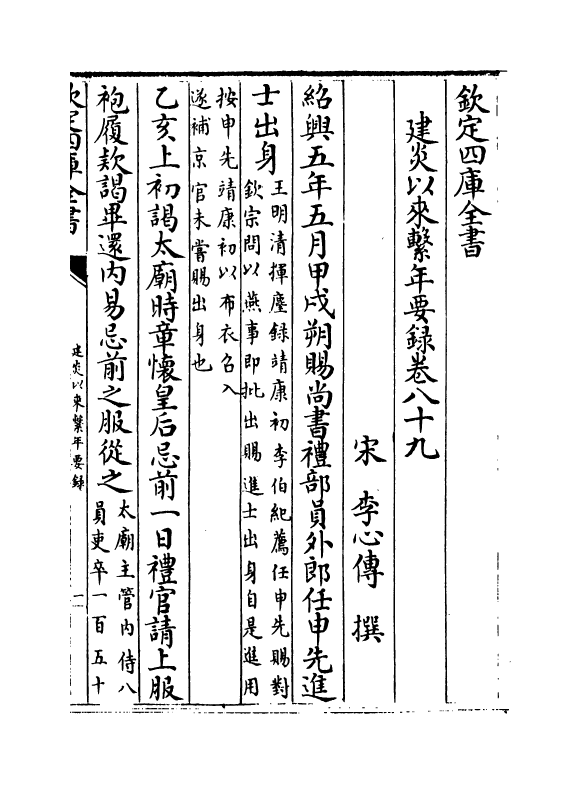 欽定四庫全書
建炎以來繫年要録卷八十九
宋 李心傳 撰
紹興五年五月甲戌朔賜尚書禮部員外郎任申先進
士出身
王明清揮塵録靖康初李伯紀薦任申先賜對
欽宗問以燕事即批出賜進士出身自是進用
按申先靖康初以布衣召入
遂補京官未嘗賜出身也
乙亥上初謁太廟時章懷皇后忌前一日禮官請上服
袍履欵謁畢還内易忌前之服從之
太廟主管内侍八
員吏卒一百五十
欽定四庫全書
建炎以來繫年要録
一